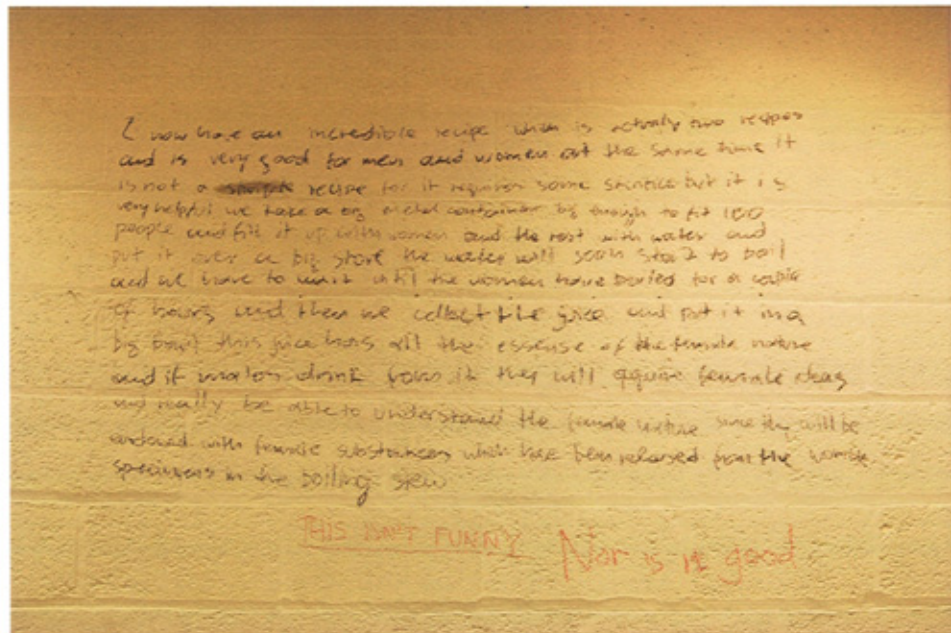 I now have an incredible recipe which is actually two recipes
and is very good for men and women at the same time it
is not a simple recipe for it requires some sacrifice but it is
very helpful we take a big metal container big enough to fit 100
people and fill it up with women and the rest with water and
put it over a big stove the water will soon start to boil
and we have to wait until the women have boiled for a couple
of hours and then we collect the juice and put it in a
big bowl this juice has all the essense of the female nature
and if males drink from it they will aquire female ideas
and really be able to understand the female nature since they will be
endowed with female substances which have been released from the
specimens in the boiling stew
THIS ISN'T FUNNY Nor is it good